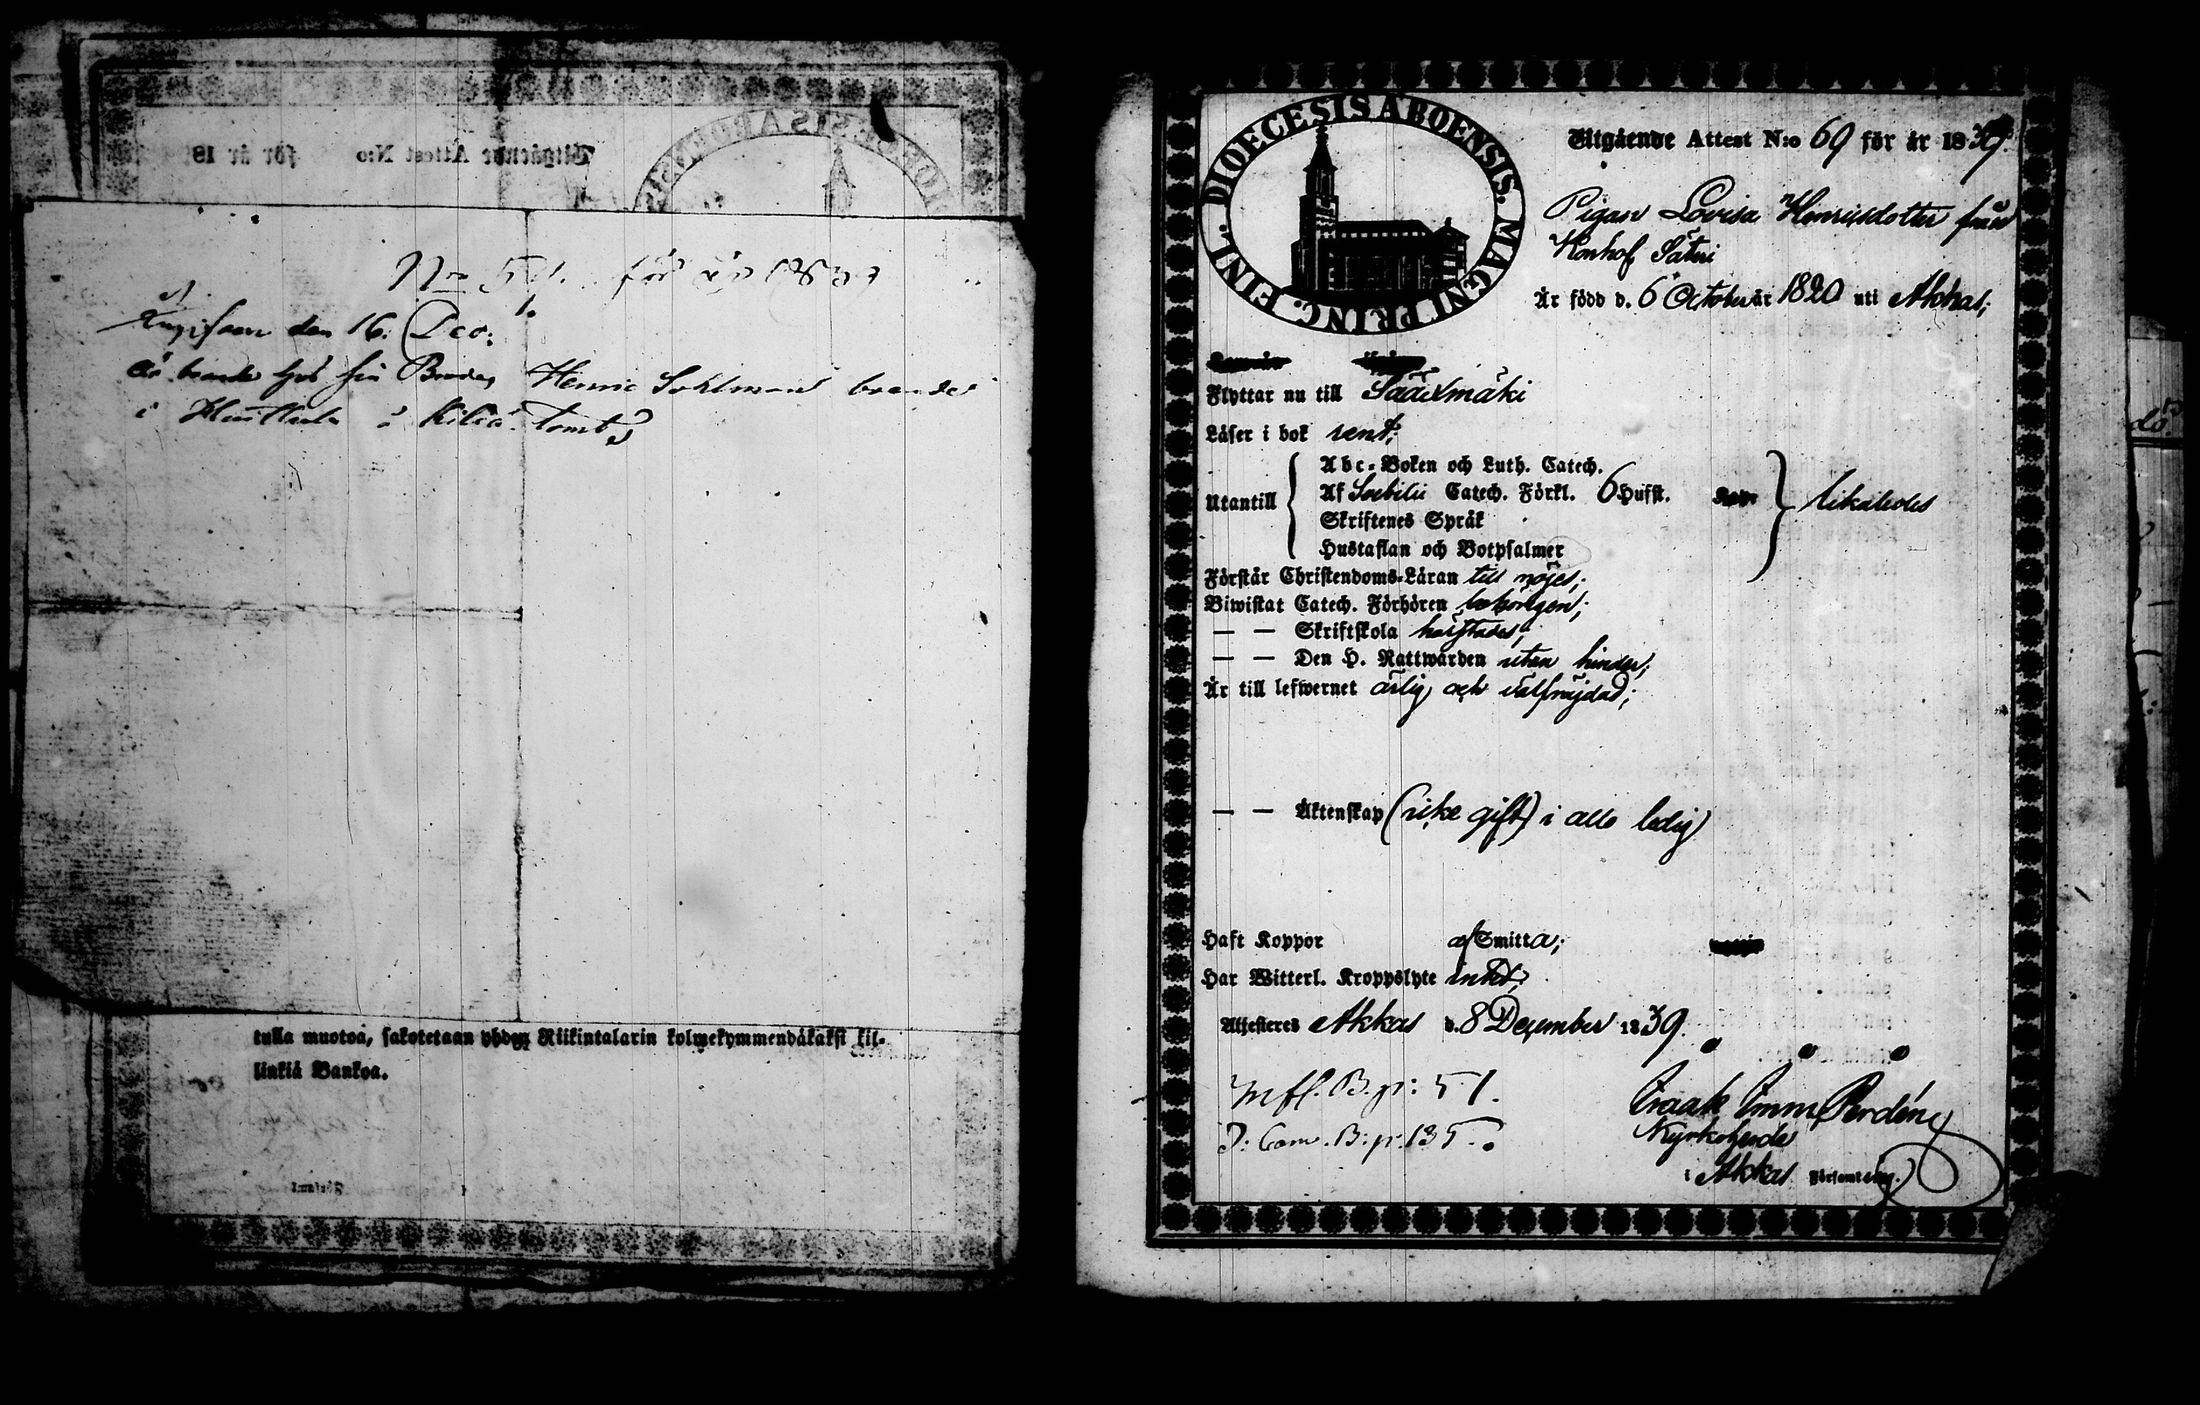 för år 18
Utgående Attest N:o
N:o 51. för år 1839
den 16. Dec:
är boende hos sin Broder Henric Sohlman boende
i
tulla muotoa, sakotetaan yhden Riikintalarin kolmekymmendäkaksi kil-
linkiä Bankoa.
DIOECESIS ABOENSIS. MAGNI PRINC. FINL.
Utgående Attest N:o 69 för år 1839.
Pigan Lovisa Henricsdotter från
Honhof Säteri
Är född d. 6 October år 1820 uti Akkas;
Flyttar nu till Sääxmäki
Läser i bok rent;
Utantill
Abc-Boken och Luth. Catech.
Af Svebilii Catech. Förkl. 6 Hufst.
Skriftenes Språk
Hustaflan och Botpsalmer
likaledes
Förstår Christendoms-Läran till nöjes;
Biwistat Catech. Förhören behörigen;
— — Skriftskola
— — Den H. Nattwarden utan hinder;
Är till lefwernet ärlig och välfräjdad;
— — Äktenskap (icke gift) i allo ledig
Haft Koppor af Smitta;
Har Witterl. Kroppslyte intet;
Attesteras Akkas d. 8 December 1839.
Infl. B. p: 51.
D: Com. B: p. 135.
Isaak Imm. Perdén
Kyrkoherde
i Akkas Församling.